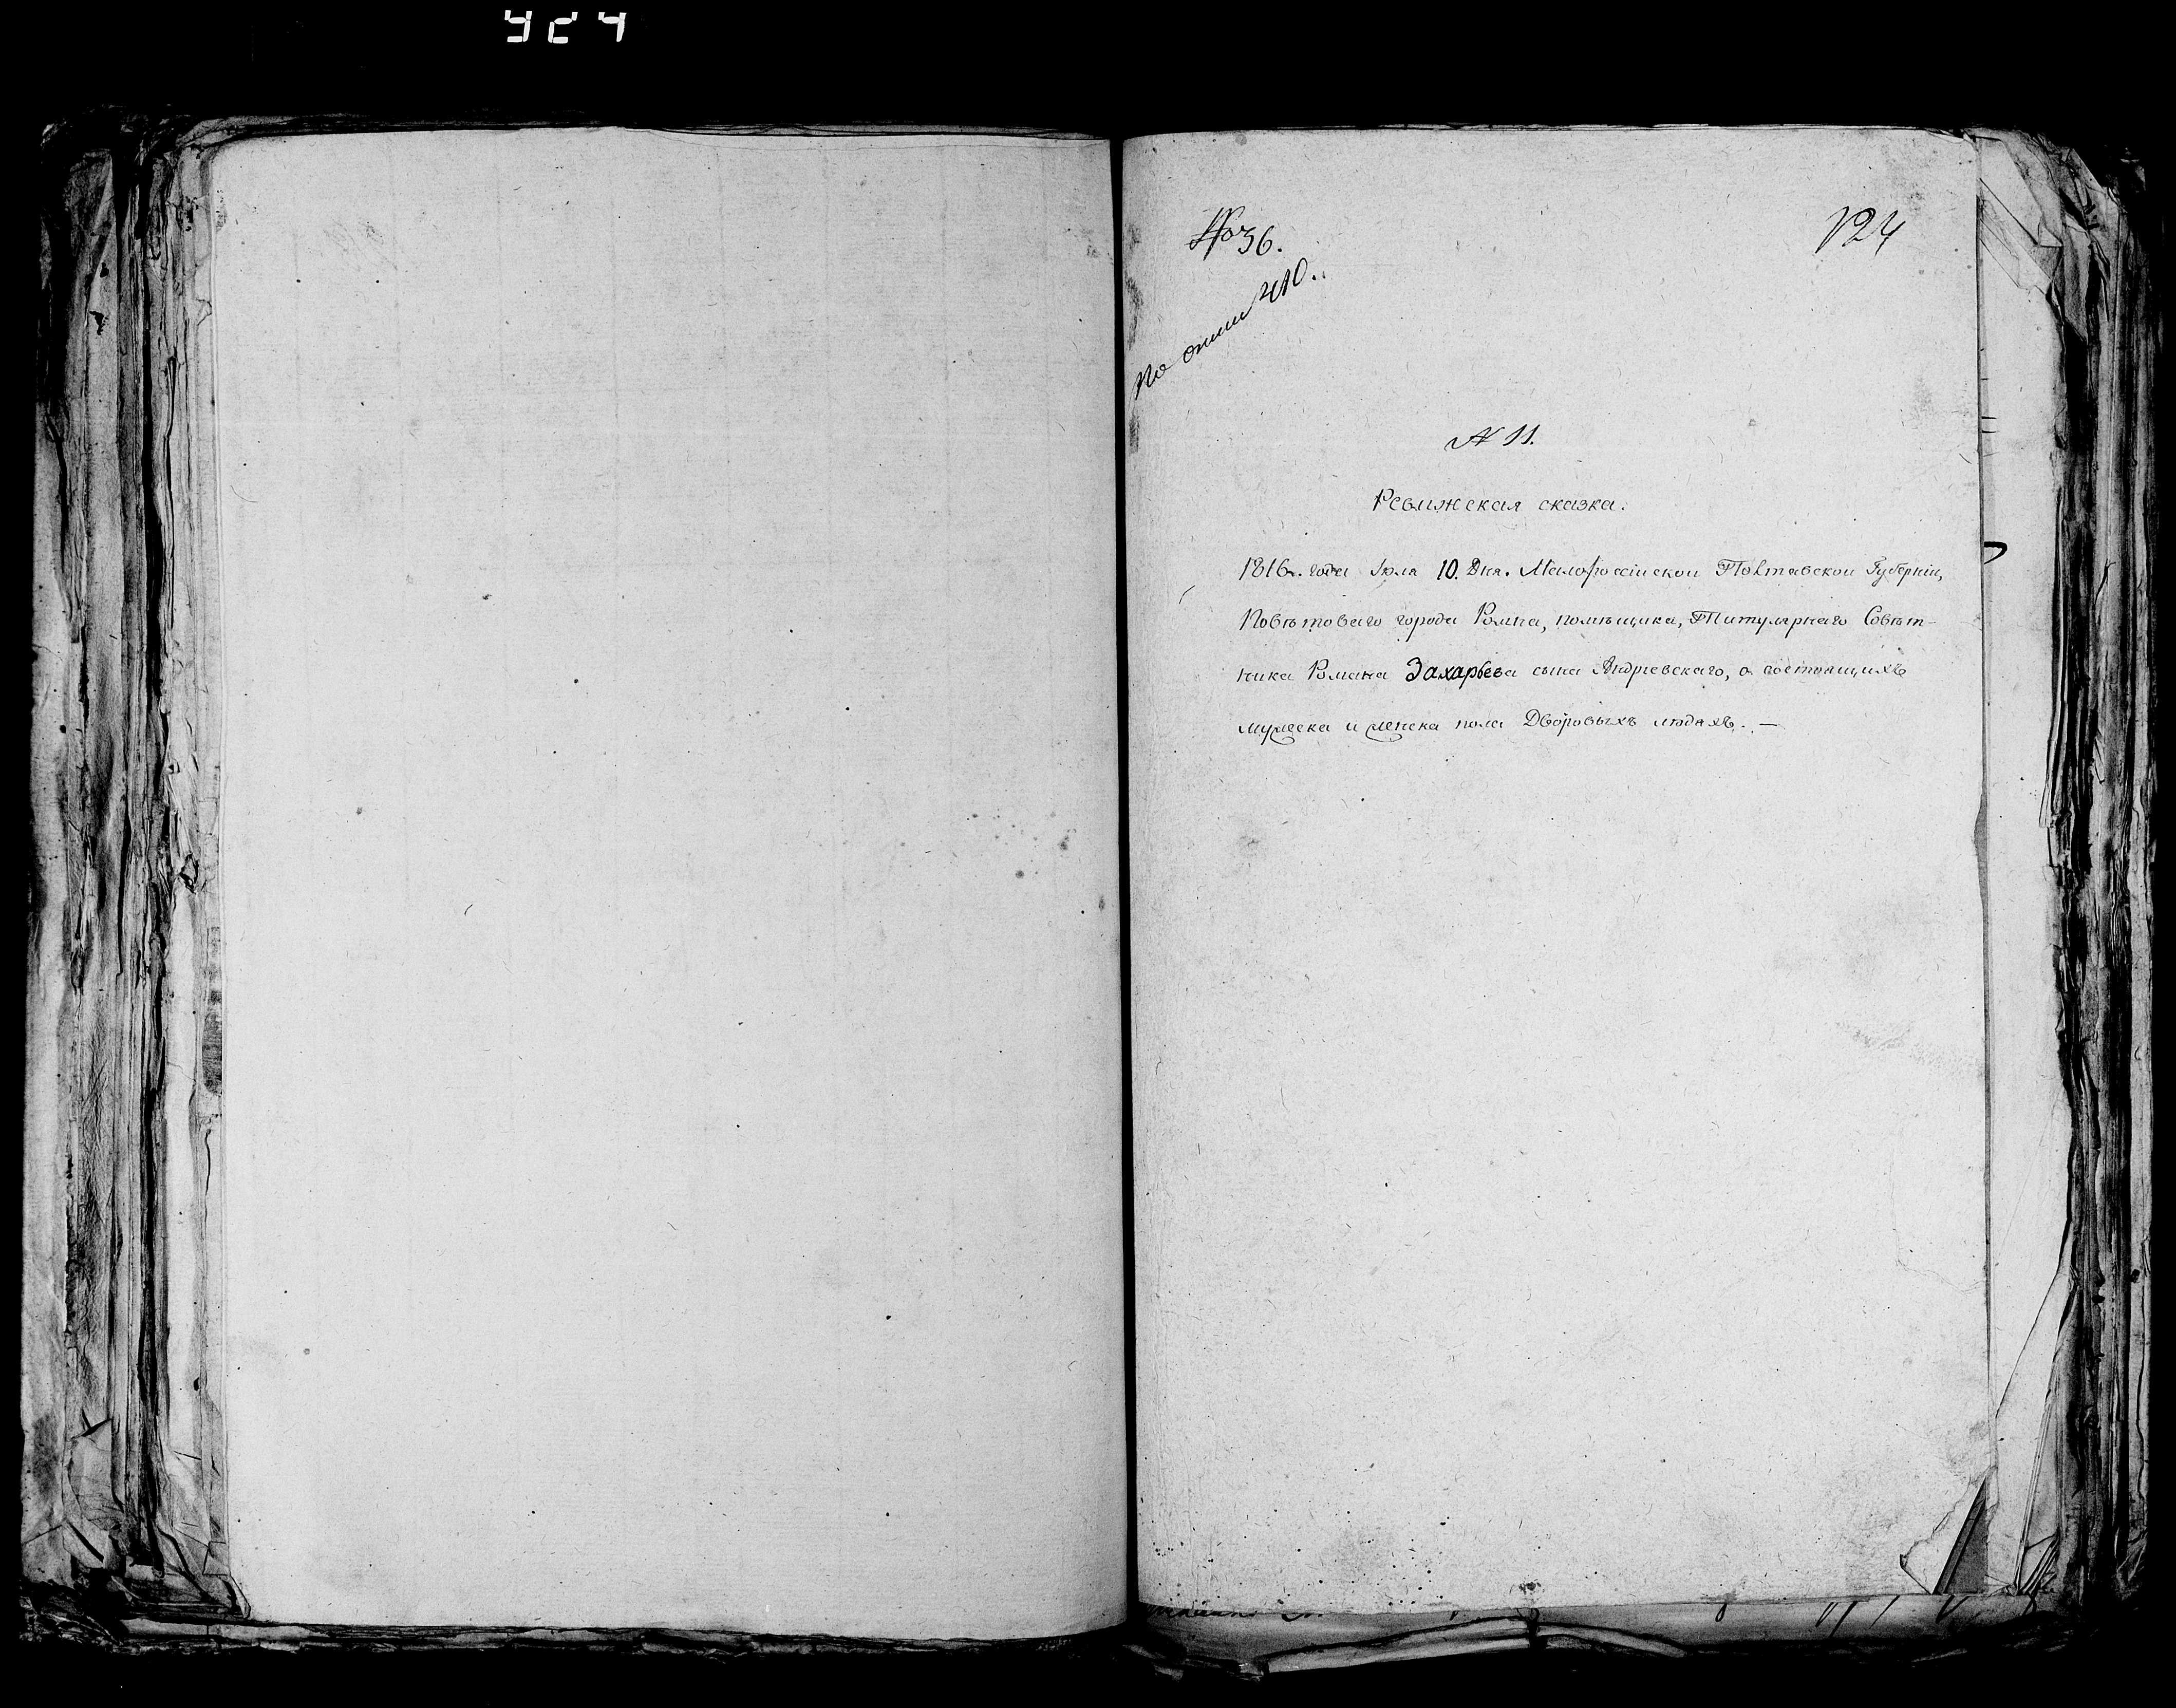 No 36.
124
По описи 410.
№ 11.
Ревижская сказка.
1816го. года Iюля 10. Дня. Малороссiйской Полтавской Губернiи,
Повѣтоваго города Ромна, помѣщика, Титулярнаго Совѣт-
ника Романа Захарьева сына Андрiевскаго, о состоящихъ
мужеска и женска пола Дворовыхъ людяхъ. —